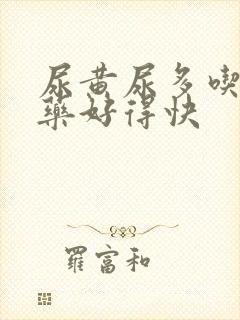 尿黄尿多喫
藥好得快
羅富和